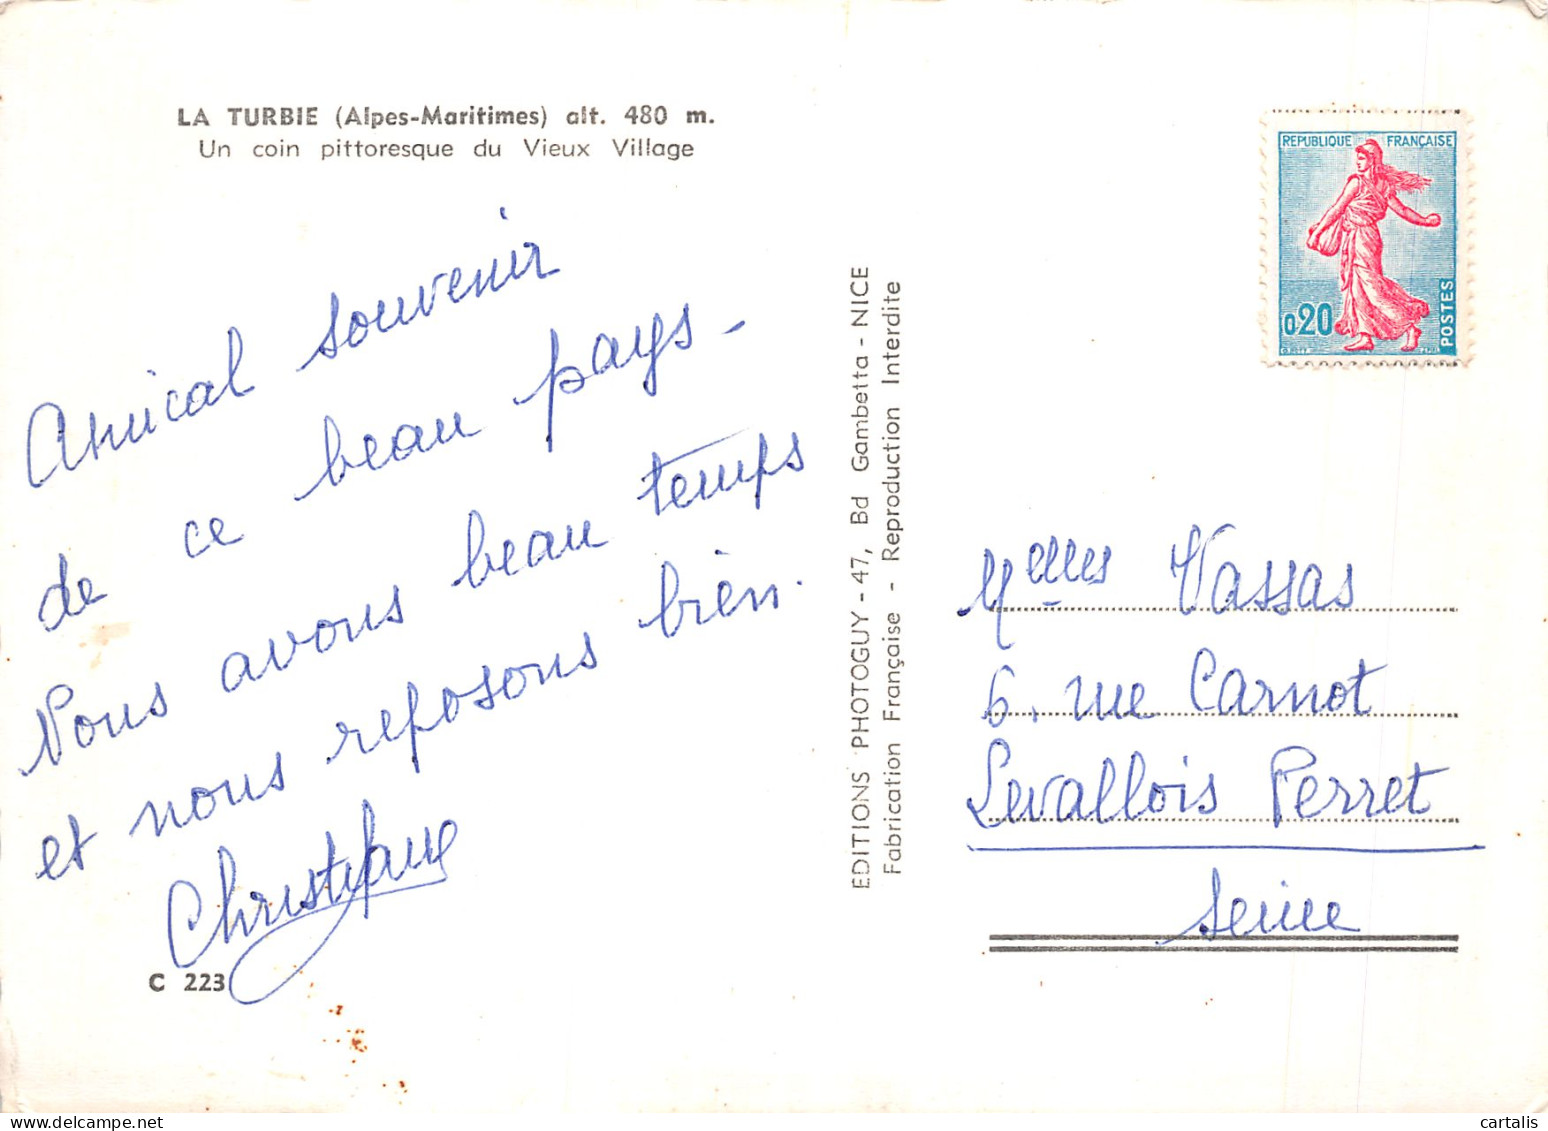 LA TURBIE (Alpes-Maritimes) alt. 480 m.
Un coin pittoresque du Vieux Village
Amical souvenir
de ce beau pays -
Nous avons beau temps
et nous reposons bien.
C 223
EDITIONS PHOTOGUY - 47, Bd Gambetta - NICE
Fabrication Française - Reproduction Interdite
REPUBLIQUE FRANÇAISE
0,20
POSTES
Melles Vassas
6, rue Carnot
Levallois Perret
Seine
cartalis